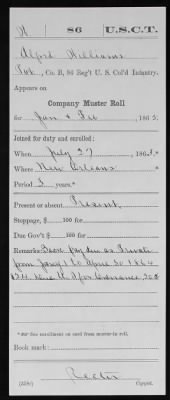 W 86 U.S.C.T.
Alfred Williams
Pvt., Co. B, 86 Reg't U. S. Col'd Infantry.
Appears on
Company Muster Roll
for Jan & Feb, 1865.
Joined for duty and enrolled:
When July 27, 1863.*
Where New Orleans
Period 3 years.*
Present or absent Present
Stoppage, $ 100 for
Due Gov't $ 100 for
Remarks: Due pay as Private
from Jany 1 to April 30 1864
Ordnance
*See enrollment on card from muster-in roll.
Book mark:
(358c) Copyist.